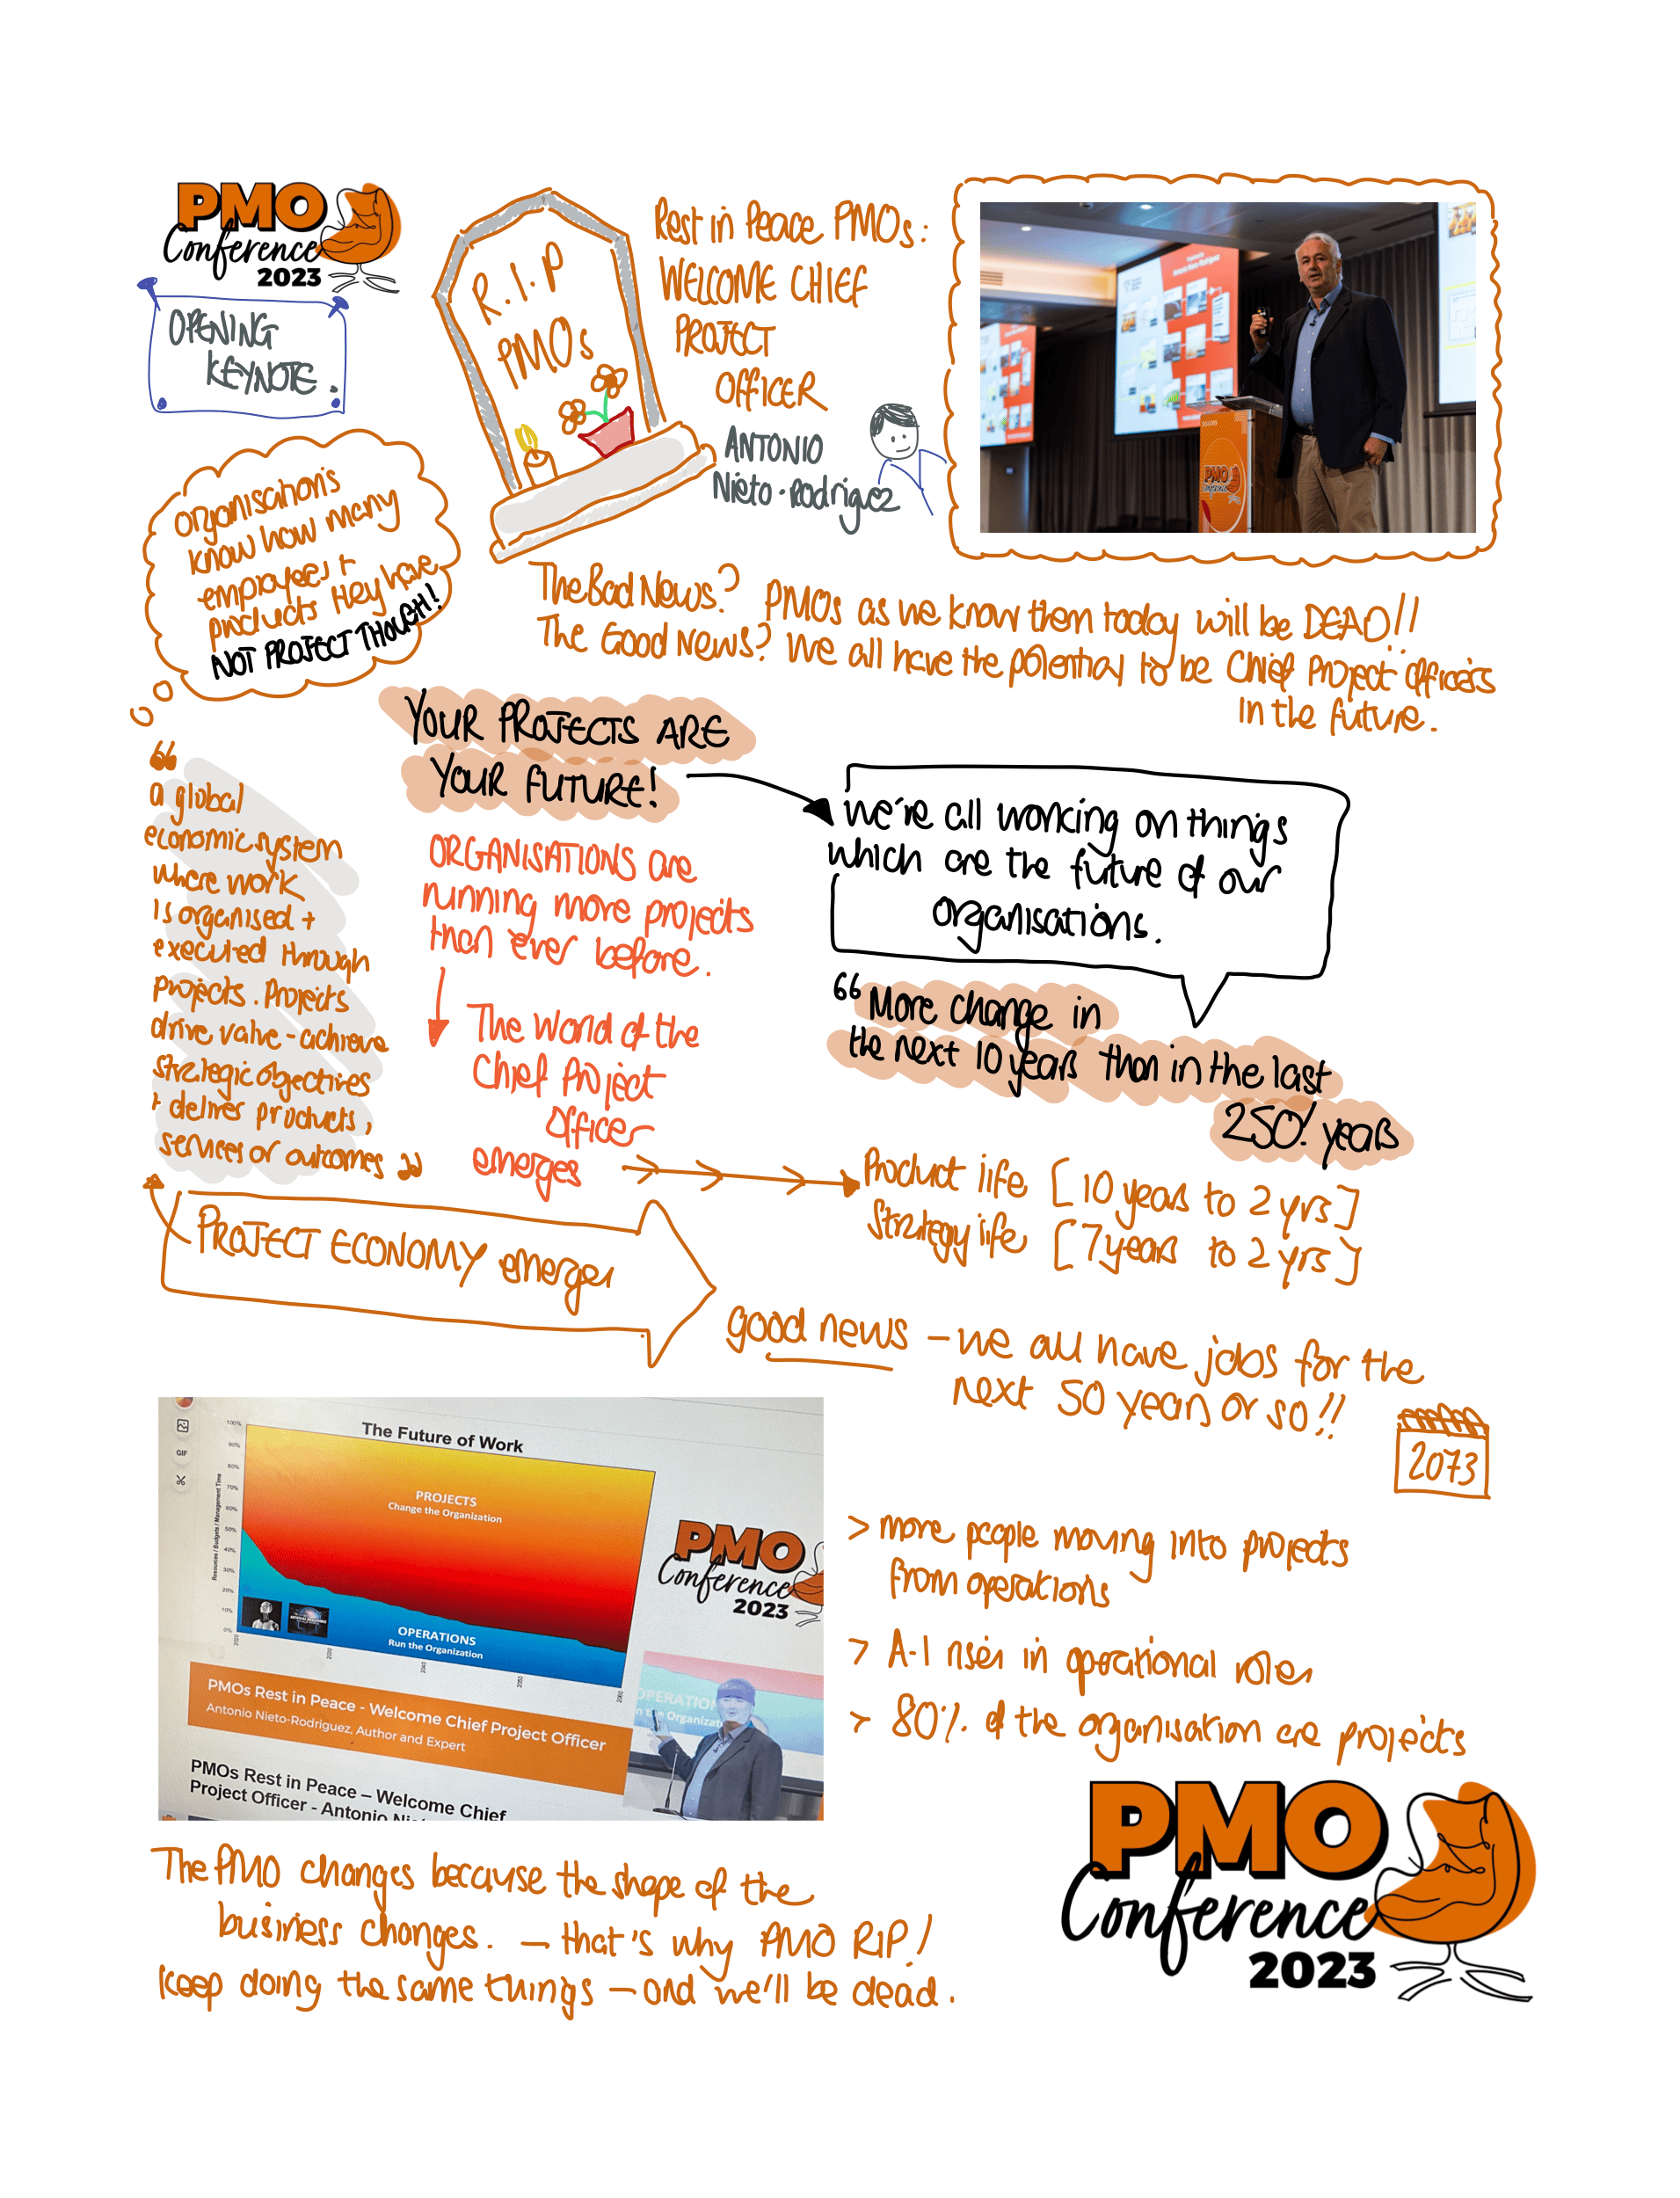 PMO
Conference
2023
OPENING
KEYNOTE.
R.I.P
PMOs
Rest in Peace PMOs:
WELCOME CHIEF
PROJECT
OFFICER
ANTONIO
Nieto-Rodriguez
PMO
Organisations
know how many
employees +
products they have
NOT PROJECT THOUGH!
The Bad News? PMOs as we know them today will be DEAD!!
The Good News? We all have the potential to be Chief Project Officers
in the future.
YOUR PROJECTS ARE
YOUR FUTURE!
we're all working on things
which are the future of our
organisations.
“
a global
economic system
where work
is organised +
executed through
projects. Projects
drive value - achieve
strategic objectives
+ deliver products,
services or outcomes ”
ORGANISATIONS are
running more projects
than ever before.
The World of the
Chief Project
Officer
emerges
“More change in
the next 10 years than in the last
250! years
Product life [10 years to 2 yrs]
Strategy life [7 years to 2 yrs]
PROJECT ECONOMY emerges
good news – we all have jobs for the
next 50 years or so!!
2073
GIF
The Future of Work
Resources / Budgets / Management Time
100%
90%
80%
70%
60%
50%
40%
30%
20%
10%
0%
PROJECTS
Change the Organization
OPERATIONS
Run the Organization
2020
2030
2040
2050
2060
PMO
Conference
2023
PMOs Rest in Peace - Welcome Chief Project Officer
Antonio Nieto-Rodriguez, Author and Expert
PMOs Rest in Peace – Welcome Chief
Project Officer - Antonio
> more people moving into projects
from operations
> A-I rises in operational roles
> 80% of the organisation are projects
The PMO changes because the shape of the
business changes. – that's why PMO RIP!
Keep doing the same things – and we'll be dead.
PMO
Conference
2023